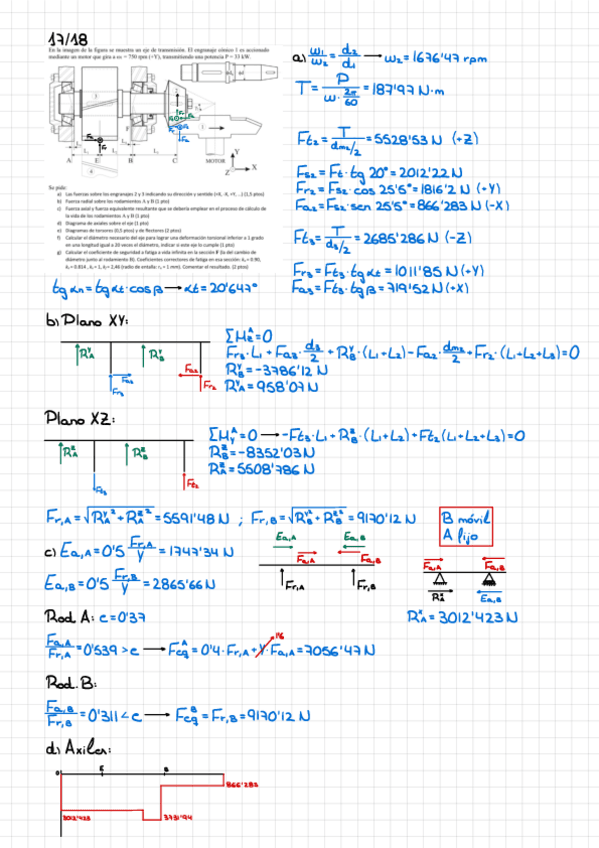 17/18
En la imagen de la figura se muestra un eje de transmisión. El engranaje cónico 1 es accionado
mediante un motor que gira a ω₁ = 750 rpm (+Y), transmitiendo una potencia P = 33 kW.
A E B C MOTOR
Y
Z X
Se pide:
a) Las fuerzas sobre los engranajes 2 y 3 indicando su dirección y sentido (+X, -X, +Y, ...) (1,5 ptos)
b) Fuerza radial sobre los rodamientos A y B (1 pto)
c) Fuerza axial y fuerza equivalente resultante que se debería emplear en el proceso de cálculo de
la vida de los rodamientos A y B (1 pto)
d) Diagrama de axiales sobre el eje (1 pto)
e) Diagramas de torsores (0,5 ptos) y de flectores (2 ptos)
f) Calcular el diámetro necesario del eje para lograr una deformación torsional inferior a 1 grado
en una longitud igual a 20 veces el diámetro, indicar si este eje lo cumple (1 pto)
g) Calcular el coeficiente de seguridad a fatiga a vida infinita en la sección F
tg αn = tg αt · cos β → αt = 20'647°
a) ω₁/ω₂ = d₂/d₁ → ω₂ = 1676'47 rpm
T = P/(ω · 2π/60) = 187'97 N·m
Ft₂ = T/(dm₂/2) = 5528'53 N (+Z)
Fs₂ = Ft · tg 20° = 2012'22 N
Fr₂ = Fs₂ · cos 25'5° = 1816'2 N (+Y)
Fa₂ = Fs₂ · sen 25'5° = 866'283 N (-X)
Ft₃ = T/(d₃/2) = 2685'286 N (-Z)
Fr₃ = Ft₃ · tg αt = 1011'85 N (+Y)
Fa₃ = Ft₃ · tg β = 719'52 N (+X)
b) Plano XY:
R_A^Y R_B^Y Fa₃ Fr₃ Fa₂ Fr₂
ΣM_Z^A = 0
Fr₃ · L₁ + Fa₃ · d₃/2 + R_B^Y · (L₁+L₂) - Fa₂ · dm₂/2 + Fr₂ · (L₁+L₂+L₃) = 0
R_B^Y = -3786'12 N
R_A^Y = 958'07 N
Plano XZ:
R_A^Z R_B^Z Ft₃ Ft₂
ΣM_Y^A = 0 → -Ft₃ · L₁ + R_B^Z · (L₁+L₂) + Ft₂ (L₁+L₂+L₃) = 0
R_B^Z = -8352'03 N
R_A^Z = 5508'786 N
Fr,A = √(R_A^Y² + R_A^Z²) = 5591'48 N ; Fr,B = √(R_B^Y² + R_B^Z²) = 9170'12 N
B móvil
A fijo
c) Ea,A = 0'5 Fr,A/Y = 1747'34 N
Ea,B = 0'5 Fr,B/Y = 2865'66 N
Ea,A Ea,B
Fa,A Fa,B
Fr,A Fr,B
Fa,A Fa,B
R_A^X Ea,B
R_A^X = 3012'423 N
Rod A: e = 0'37
Fa,A/Fr,A = 0'539 > e → Feq^A = 0'4 · Fr,A + Y · Fa,A = 7056'47 N
1'6
Rod. B:
Fa,B/Fr,B = 0'311 < e → Feq^B = Fr,B = 9170'12 N
d) Axiles:
E B
866'283
3012'423 3731'94